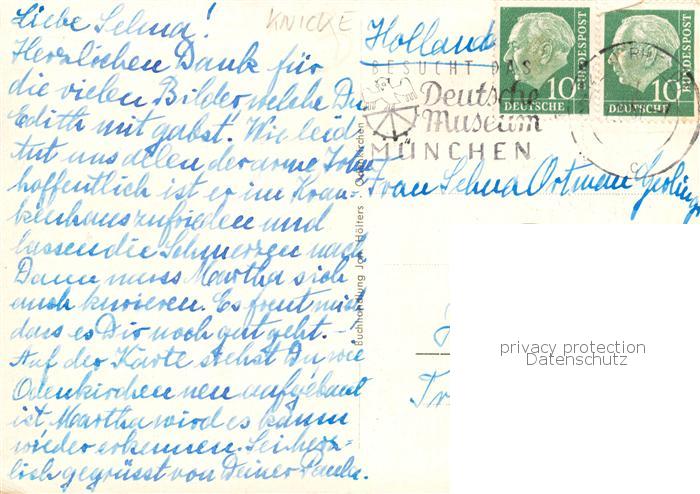 Liebe Selma!
Herzlichen Dank für
die vielen Bilder welche Du
Edith mit gabst. Wie leid
tut uns allen der arme
hoffentlich ist er im Kran-
kenhaus zufrieden und
lassen die Schmerzen nach
Dann muss Martha sich
auch kurieren. Es freut mich
dass es Dir noch gut geht. –
Auf der Karte siehst Du wie
Odenkirchen neu aufgebaut
ist Martha wird es kaum
wieder erkennen. Sei herz-
lich gegrüsst von Deiner Paula.
KNICKE
Holland
BESUCHT DAS
Deutsche
Museum
MÜNCHEN
10
DEUTSCHE
BUNDESPOST
10
DEUTSCHE
BUNDESPOST
Frau Selma Ortman
Buchhandlung Joh. Hölters · Odenkirchen
privacy protection
Datenschutz